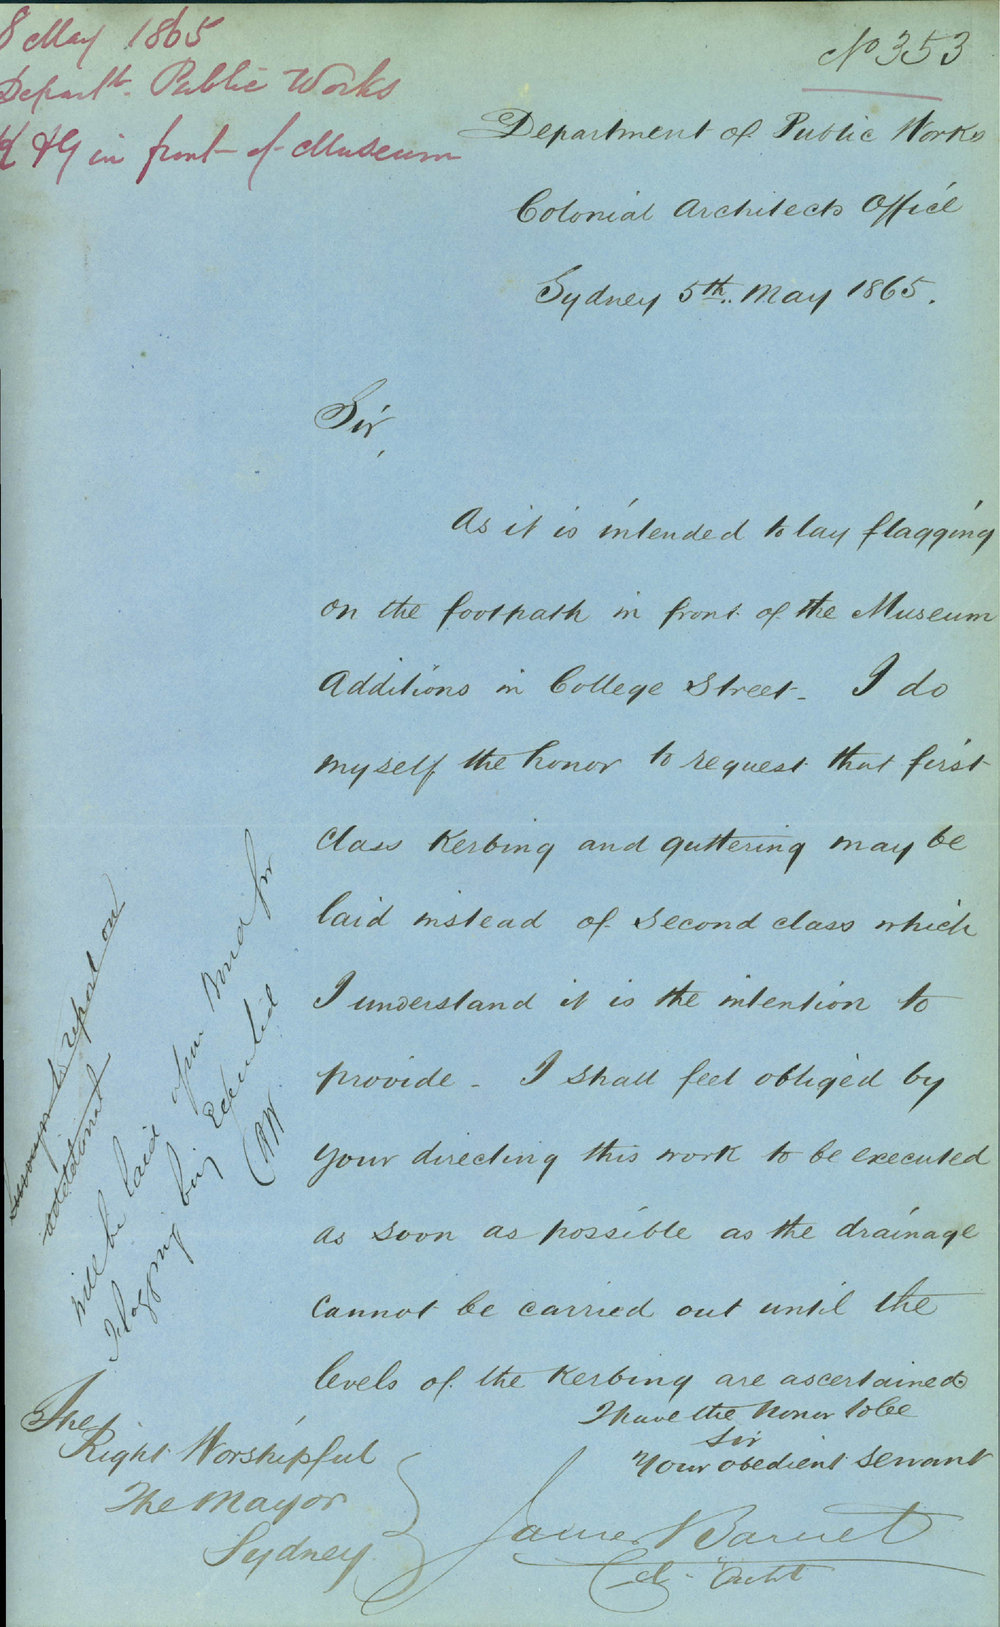 8 May 1865
Departt. Public Works
K & G in front of Museum
No 353
Department of Public Works
Colonial Architects Office
Sydney 5th. May 1865.
Sir,
As it is intended to lay flagging
on the footpath in front of the Museum
Additions in College Street - I do
myself the honor to request that first
class Kerbing and guttering may be
laid instead of second class which
I understand it is the intention to
provide - I shall feel obliged by
your directing this work to be executed
as soon as possible as the drainage
cannot be carried out until the
levels of the Kerbing are ascertained.
I have the honor to be
Sir
Your obedient servant
James Barnet
Col. Archt
The
Right Worshipful
The Mayor
Sydney
to report on
additional
will be laid upon and for
Flagging being Executed